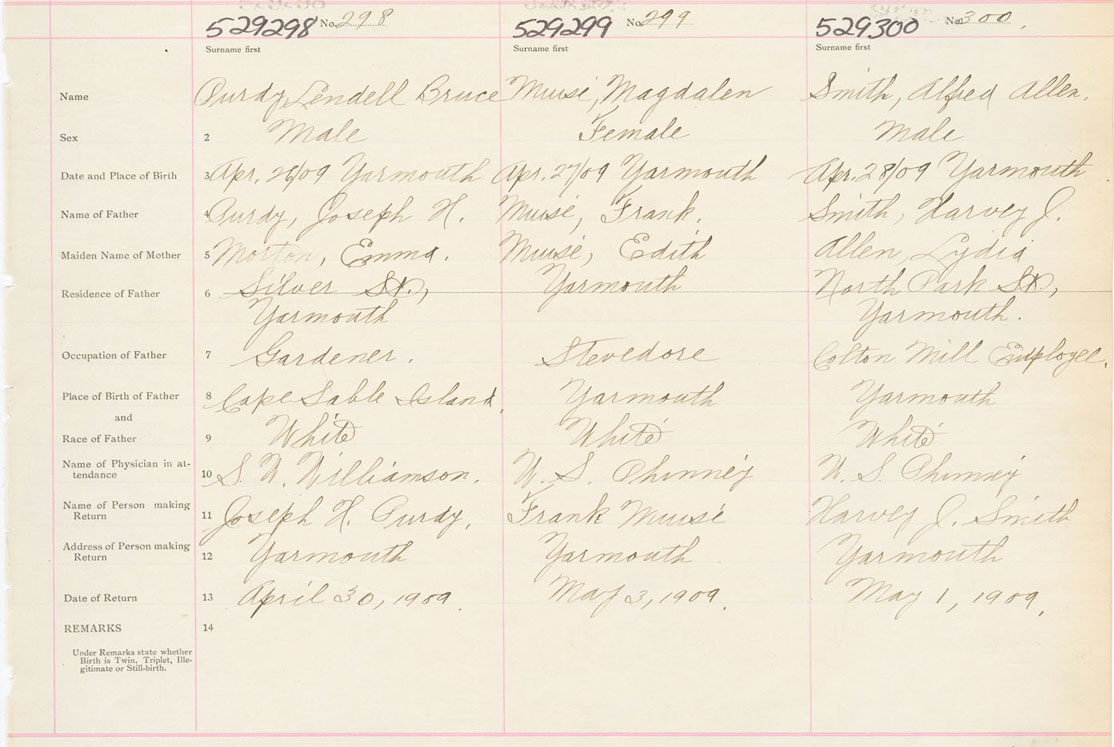 529298 No. 298 529299 No. 299 529300 No. 300.
Surname first Surname first Surname first
Name Purdy, Lendell Bruce Muise, Magdalen Smith, Alfred Allen.
Sex 2 Male Female Male
Date and Place of Birth 3 Apr. 26/09 Yarmouth Apr. 27/09 Yarmouth Apr. 28/09 Yarmouth
Name of Father 4 Purdy, Joseph H. Muise, Frank. Smith, Harvey J.
Maiden Name of Mother 5 Morton, Emma. Muise, Edith Allen, Lydia
Residence of Father 6 Silver St., Yarmouth North Park St.,
Yarmouth Yarmouth.
Occupation of Father 7 Gardener. Stevedore Cotton Mill Employee.
Place of Birth of Father 8 Cape Sable Island. Yarmouth Yarmouth
and
Race of Father 9 White White White
Name of Physician in at-
tendance 10 S. W. Williamson. W. S. Phinney W. S. Phinney
Name of Person making
Return 11 Joseph H. Purdy. Frank Muise Harvey J. Smith
Address of Person making
Return 12 Yarmouth Yarmouth Yarmouth
Date of Return 13 April 30, 1909. May 3, 1909. May 1, 1909.
REMARKS 14
Under Remarks state whether
Birth is Twin, Triplet, Ille-
gitimate or Still-birth.